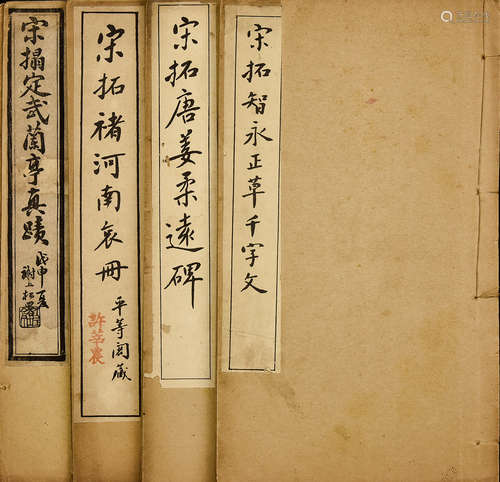 宋拓智永正草千字文
宋拓唐姜柔遠碑
宋拓褚河南哀冊
平等閣藏
許莘農
宋搨定武蘭亭真蹟
戊申夏